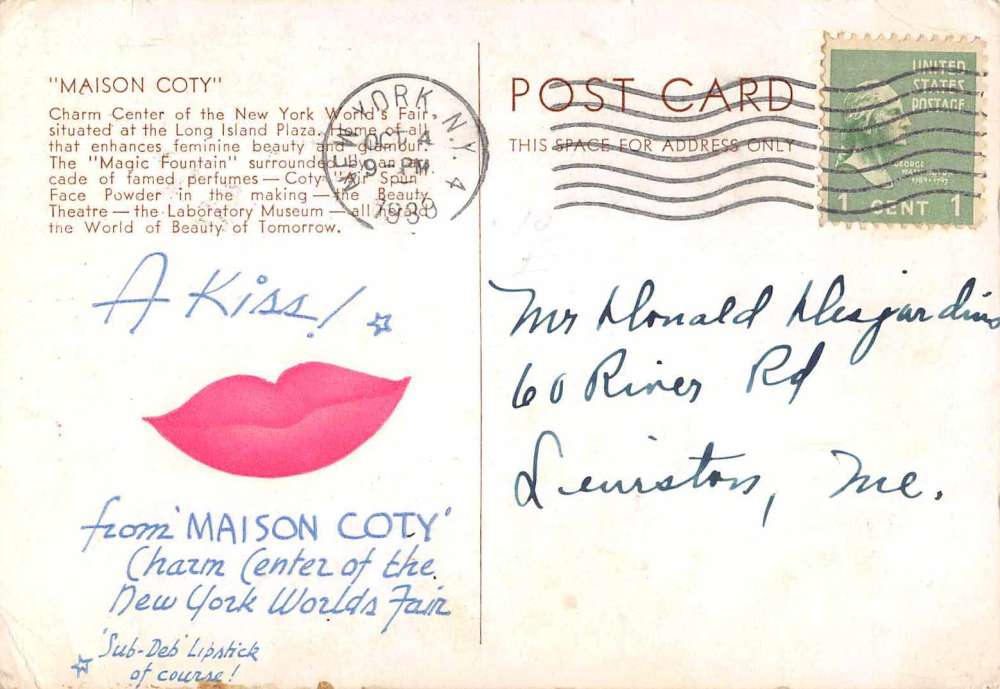 "MAISON COTY"
Charm Center of the New York World's Fair,
situated at the Long Island Plaza. Home of all
that enhances feminine beauty and glamour.
The "Magic Fountain" surrounded by an ar-
cade of famed perfumes — Coty "Air Spun"
Face Powder in the making — the Beauty
Theatre — the Laboratory Museum — all
the World of Beauty of Tomorrow.
A Kiss!
from 'MAISON COTY'
Charm Center of the
New York Worlds Fair
'Sub-Deb' Lipstick
of course!
NEW YORK, N.Y. 4
OCT 4
9 PM
1939
POST CARD
THIS SPACE FOR ADDRESS ONLY
UNITED
STATES
POSTAGE
GEORGE
WASHINGTON
1789-1797
1 CENT 1
Mr Donald Desjardins
60 River Rd
Lewiston, Me.